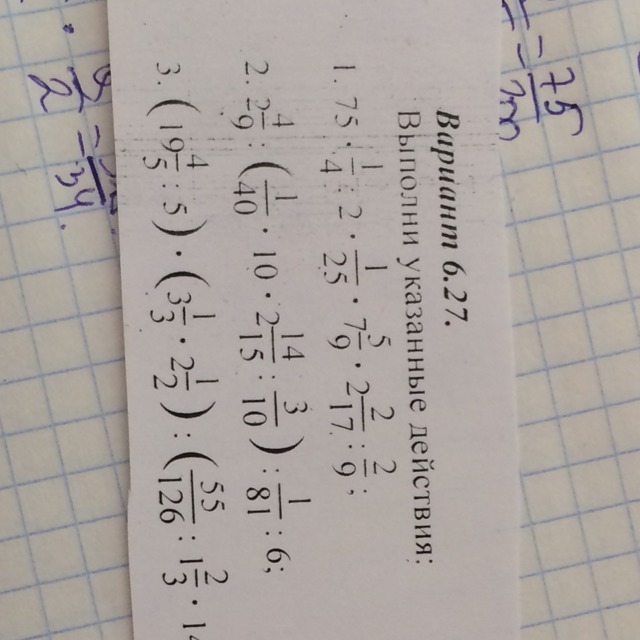 Вариант 6.27.
Выполни указанные действия:
1. 75 · 1/4 : 2 · 1/25 · 7 5/9 · 2 2/17 : 2/9;
2. 2 4/9 : (1/40 · 10 · 2 14/15 : 3/10) : 1/81 : 6;
3. (19 4/5 : 5) · (3 1/3 · 2 1/2) : (55/126 : 1 2/3 · 14
75
=
2
=